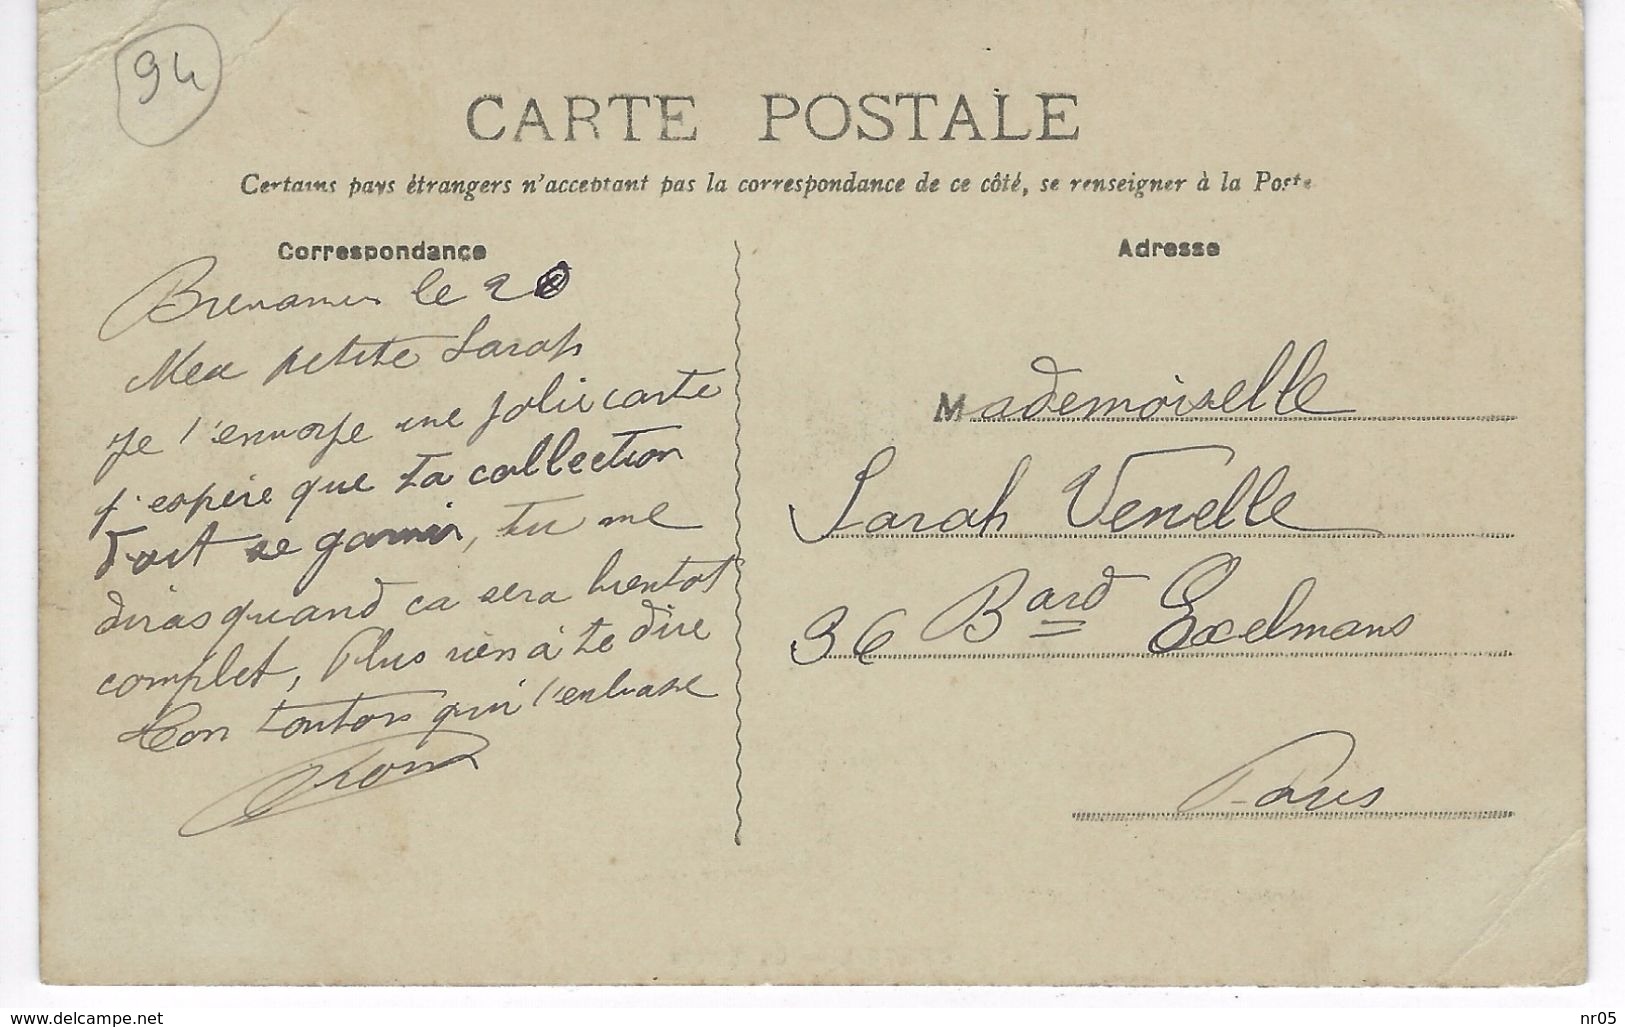 94
CARTE POSTALE
Certains pays étrangers n'acceptant pas la correspondance de ce côté, se renseigner à la Poste
Correspondance
le 28
Ma petite Sarah
Je t'envoye une jolie carte
j'espère que ta collection
doit se garnir, tu me
diras quand ca sera bientot
complet, Plus rien à te dire
Ton tonton qui t'enbrasse
Adresse
Mademoiselle
Sarah Venelle
36 Bard Exelmans
Paris
www.delcampe.net
nr05